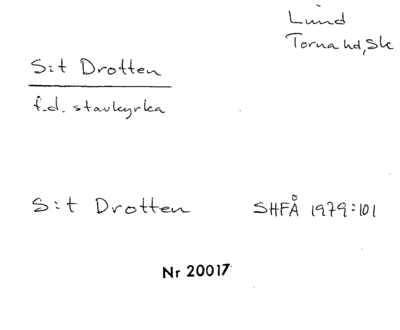 Lund
Torna hd, Sk
S:t Drotten
f.d. stavkyrka
S:t Drotten SHFÅ 1979:101
Nr 20017